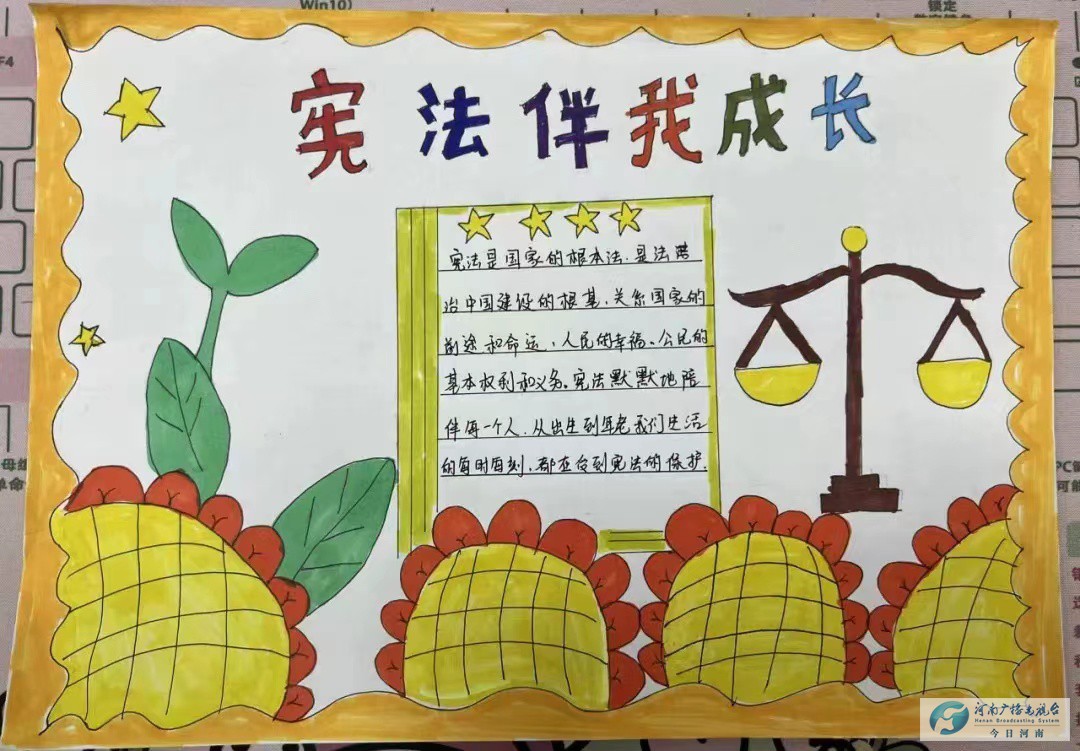 Win10）
锁定
F4
宪法伴我成长
宪法是国家的根本法.是法
治中国建设的根基.关系国家的
前途和命运、人民的幸福。公民的
基本权利和义务。宪法默默地陪
伴每一个人.从出生到年老我们生活
的每时每刻.都在 到宪法的保护.
母组
单命
PC
可能
河南广播电视台
Henan Broadcasting System
今日河南